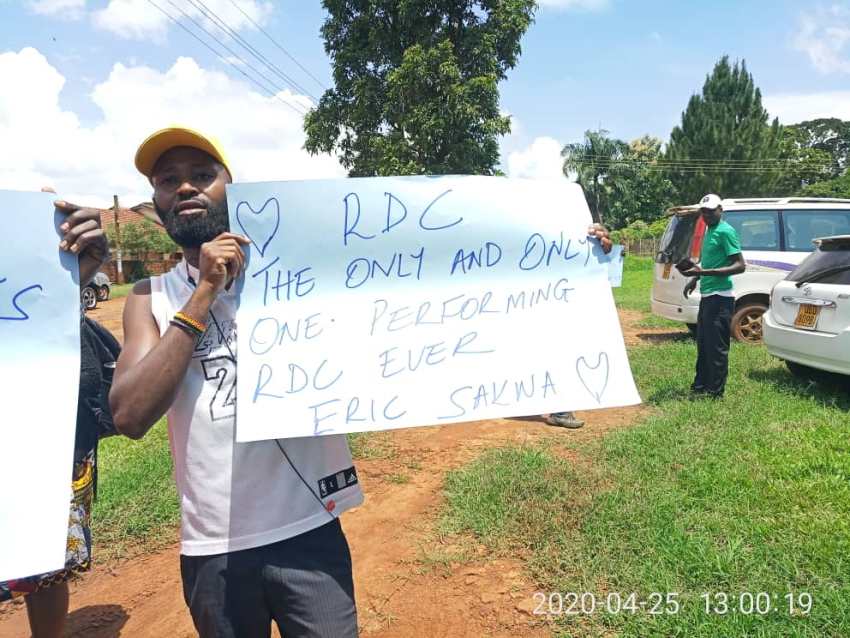 RDC
THE ONLY AND ONLY
ONE. PERFORMING
RDC EVER
ERIC SAKWA
2
2020-04-25 13:00:19